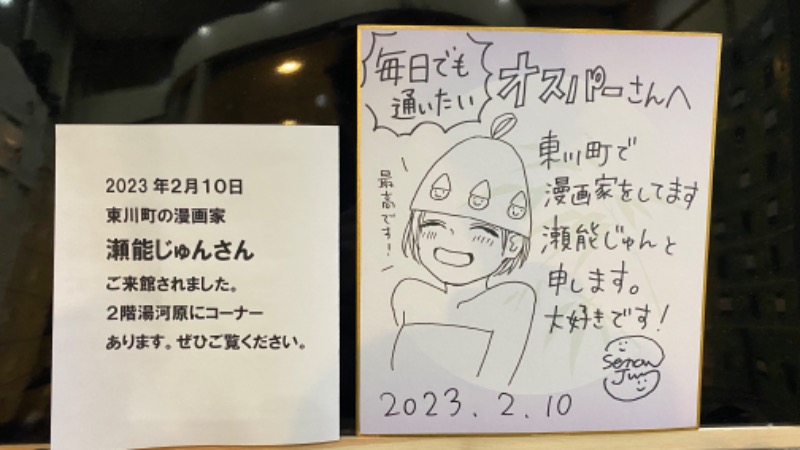 2023年2月10日
東川町の漫画家
瀬能じゅんさん
ご来館されました。
2階湯河原にコーナー
あります。ぜひご覧ください。
毎日でも
通いたい
オスパーさんへ
最高です！
東川町で
漫画家をしてます
瀬能じゅんと
申します。
大好きです！
Senou
Jun
2023.2.10